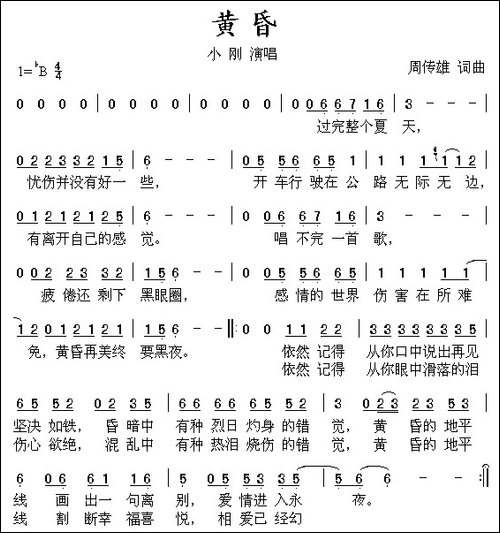 黄昏
小 刚 演唱
1=♭B 4/4
周传雄 词曲
0 0 0 0 | 0 0 0 0 | 0 0 0 0 | 0 0 6 6 7 1 6 | 3 - - - |
过完整个夏 天,
0 2 2 3 3 2 1 5 | 6 - - - | 0 5 5 6 6 5 1 | 1 1 1 1 1 2 |
忧伤并没有好一 些。 开 车行 驶在 公 路 无 际 无 边,
0 1 2 1 2 1 2 5 | 6 - - - | 0 0 6 6 7 1 6 | 3 - - - |
有离开自己的感 觉。 唱 不完 一首 歌,
0 0 2 2 3 2 | 3 1 5 6 - - | 0 5 5 6 6 5 | 1 1 1 1 1
疲 倦还 剩下 黑眼圈, 感 情的 世界 伤 害 在 所 难
1 2 0 1 2 1 2 1 | 1 5 6 - - ‖: 0 0 1 1 2 2 | 3 3 3 3 3 3 3 3
免, 黄昏再美终 要黑夜。 依然 记得 从你口中说出再见
依然 记得 从你眼中滑落的泪
6 5 5 0 2 3 2 | 2 2 3 2 1 2 5 3 | 3 0 2 3 2 3 5 3
坚决 如铁, 昏 暗中 有种 烈日 灼身 的错 觉, 黄 昏的 地平
伤心 欲绝, 混 乱中 有种 热泪 烧伤 的错 觉, 黄 昏的 地平
6 0 6 1 1 6 | 5 0 5 2 5 3 3 5 | 5 6 6 - - :‖
线 画 出一 句离 别, 爱 情进 入永 夜。
线 割 断幸 福喜 悦, 相 爱已 经幻